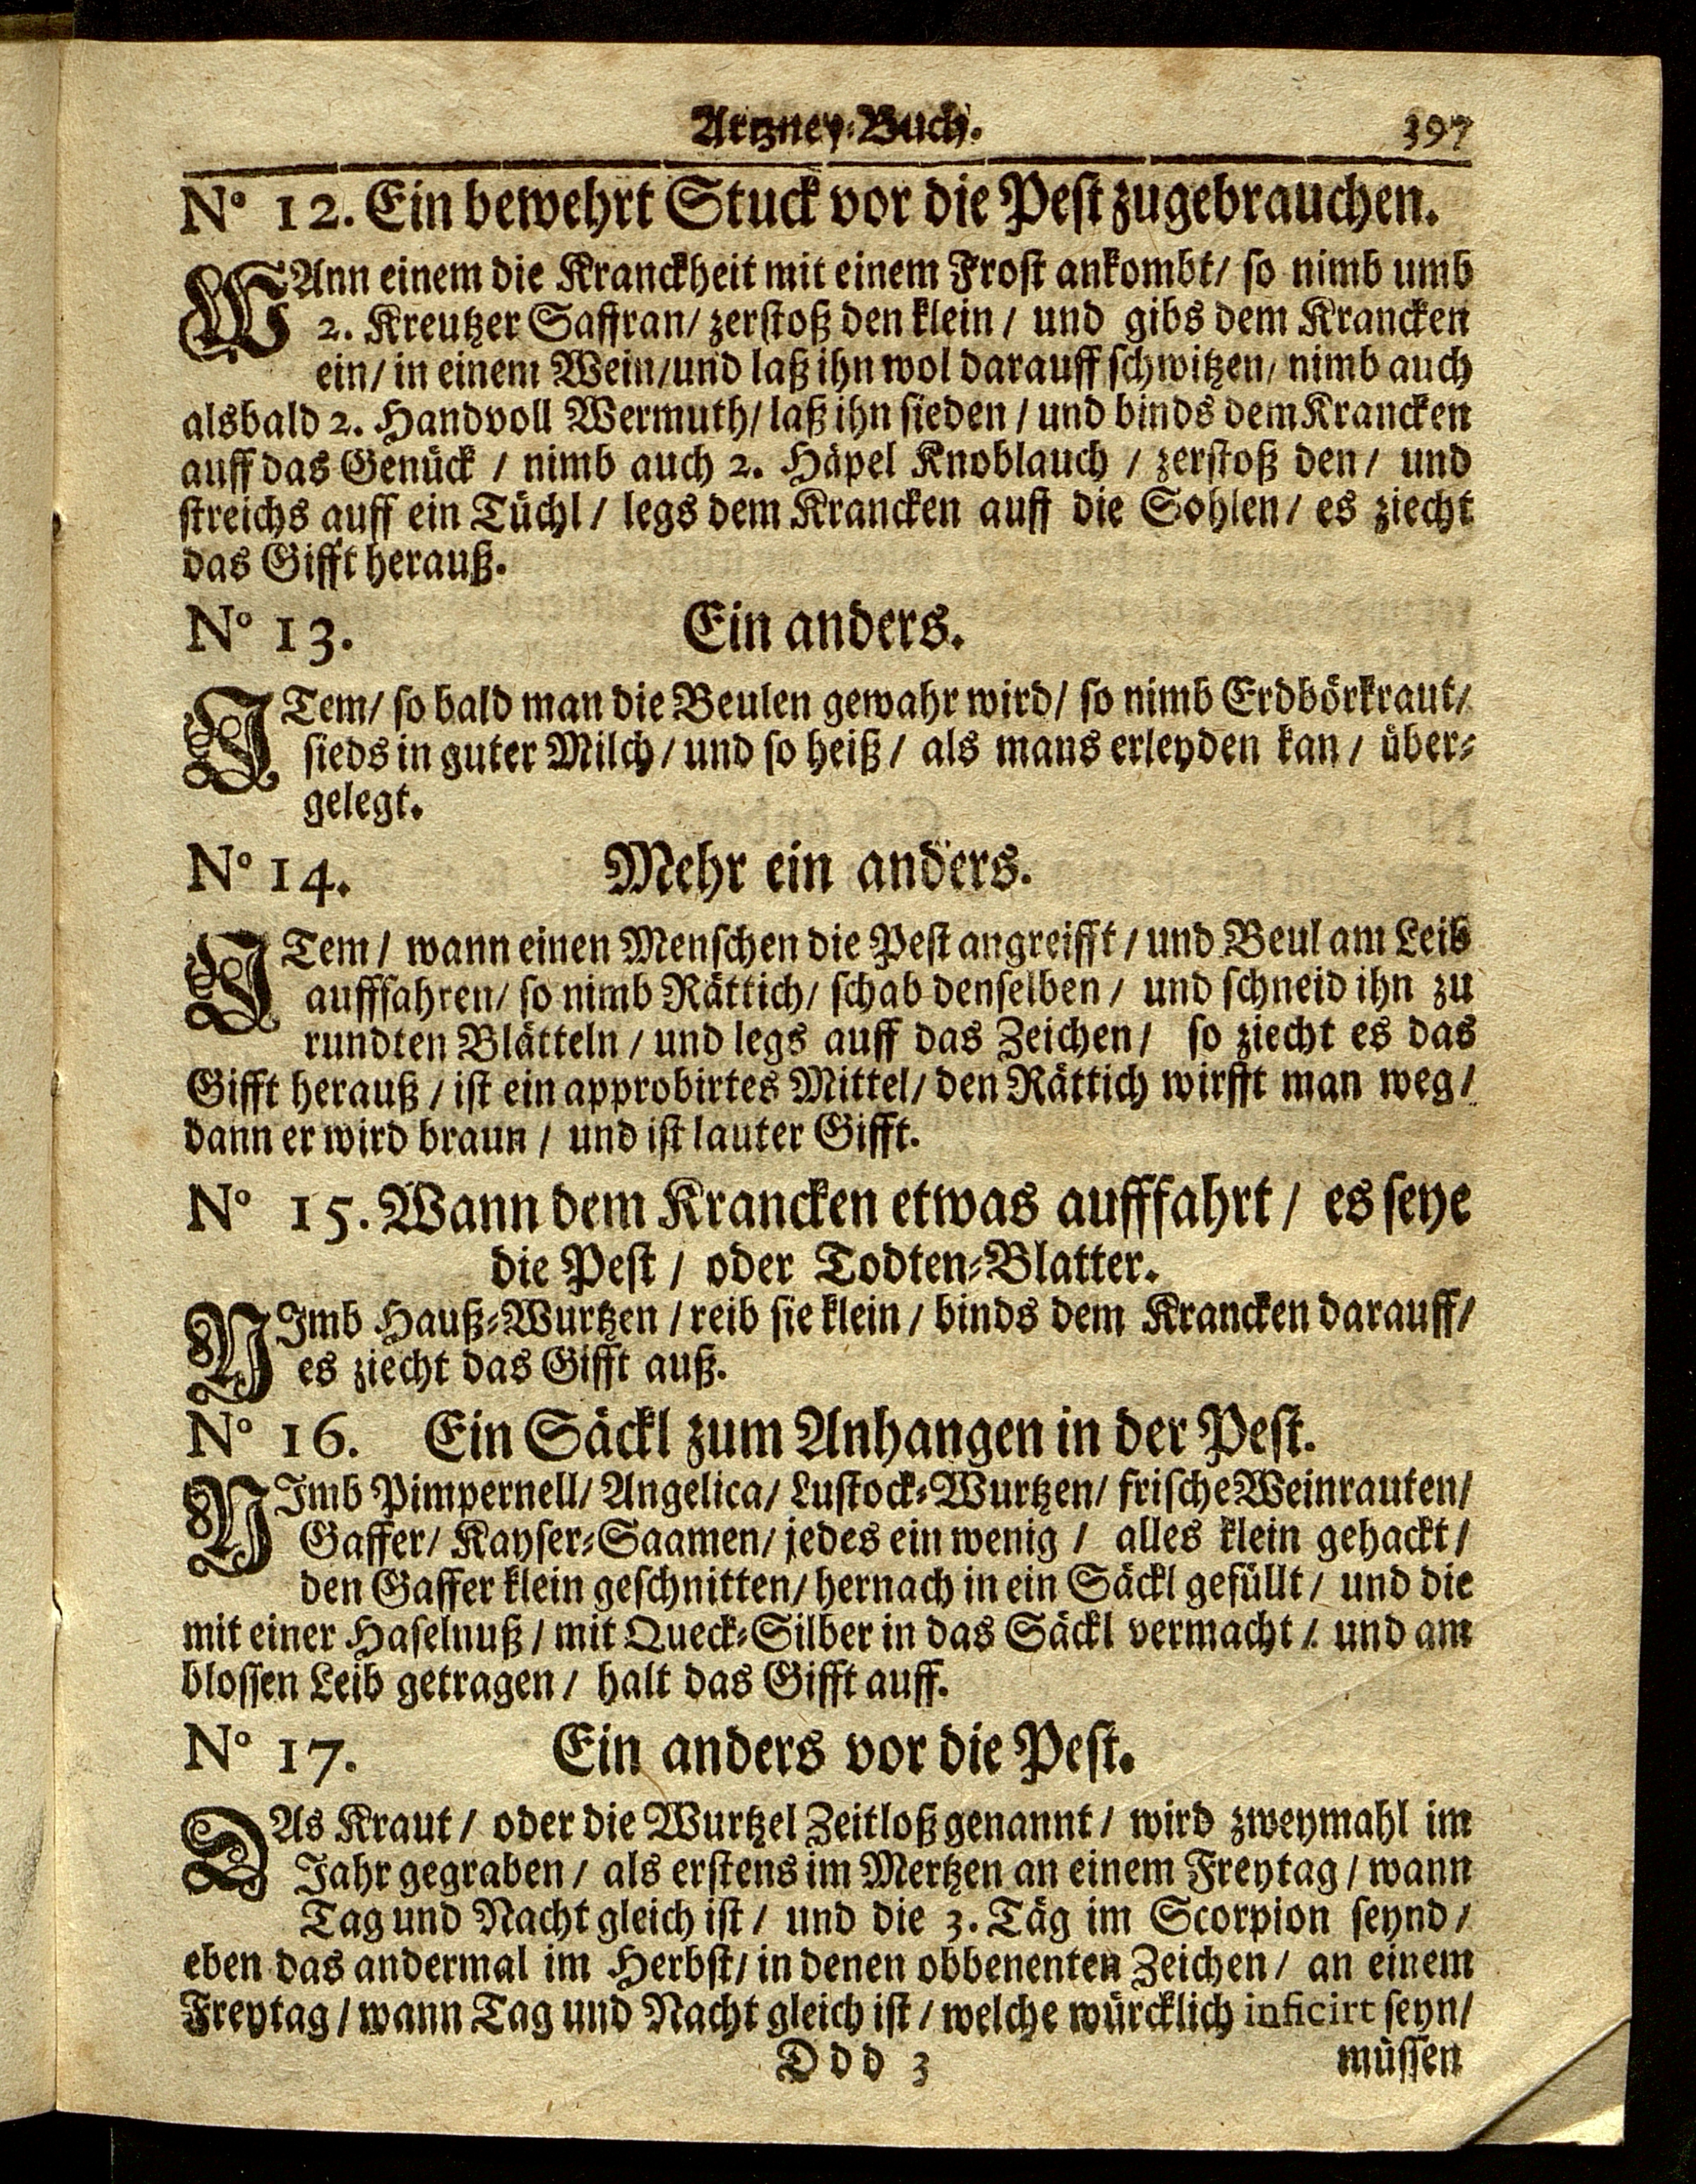 Artzney-Buch. 397
No 12. Ein bewehrt Stuck vor die Pest zugebrauchen.
WAnn einem die Kranckheit mit einem Frost ankombt/ so nimb umb
2. Kreutzer Saffran/ zerstoß den klein/ und gibs dem Krancken
ein/ in einem Wein/und laß ihn wol darauff schwitzen/ nimb auch
alsbald 2. Handvoll Wermuth/ laß ihn sieden / und binds dem Krancken
auff das Genück / nimb auch 2. Häpel Knoblauch / zerstoß den / und
streichs auff ein Tüchl / legs dem Krancken auff die Sohlen / es ziecht
das Gifft herauß.
No 13. Ein anders.
ITem/ so bald man die Beulen gewahr wird/ so nimb Erdbörkraut/
sieds in guter Milch / und so heiß / als mans erleyden kan / über-
gelegt.
No 14. Mehr ein anders.
ITem / wann einen Menschen die Pest angreifft / und Beul am Leib
aufffahren/ so nimb Rättich/ schab denselben / und schneid ihn zu
rundten Blätteln / und legs auff das Zeichen / so ziecht es das
Gifft herauß / ist ein approbirtes Mittel/ den Rättich wirfft man weg /
dann er wird braun / und ist lauter Gifft.
No 15. Wann dem Krancken etwas aufffahrt / es seye
die Pest / oder Todten-Blatter.
NImb Hauß-Wurtzen / reib sie klein / binds dem Krancken darauff/
es ziecht das Gifft auß.
No 16. Ein Säckl zum Anhangen in der Pest.
NImb Pimpernell/ Angelica/ Lustock-Wurtzen/ frische Weinrauten/
Gaffer/ Kayser-Saamen/ jedes ein wenig / alles klein gehackt /
den Gaffer klein geschnitten/ hernach in ein Säckl gefüllt / und die
mit einer Haselnuß / mit Queck-Silber in das Säckl vermacht / und am
blossen Leib getragen / halt das Gifft auff.
No 17. Ein anders vor die Pest.
DAs Kraut / oder die Wurtzel Zeitloß genannt / wird zweymahl im
Jahr gegraben / als erstens im Mertzen an einem Freytag / wann
Tag und Nacht gleich ist / und die 3. Täg im Scorpion seynd /
eben das andermal im Herbst/ in denen obbenenten Zeichen / an einem
Freytag / wann Tag und Nacht gleich ist / welche würcklich inficirt seyn/
Ddd 3 müssen